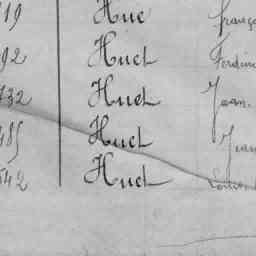 19 Huc franç
92 Huet Ferdin
432 Huet Jean
485 Huet Jean
542 Huet Louis